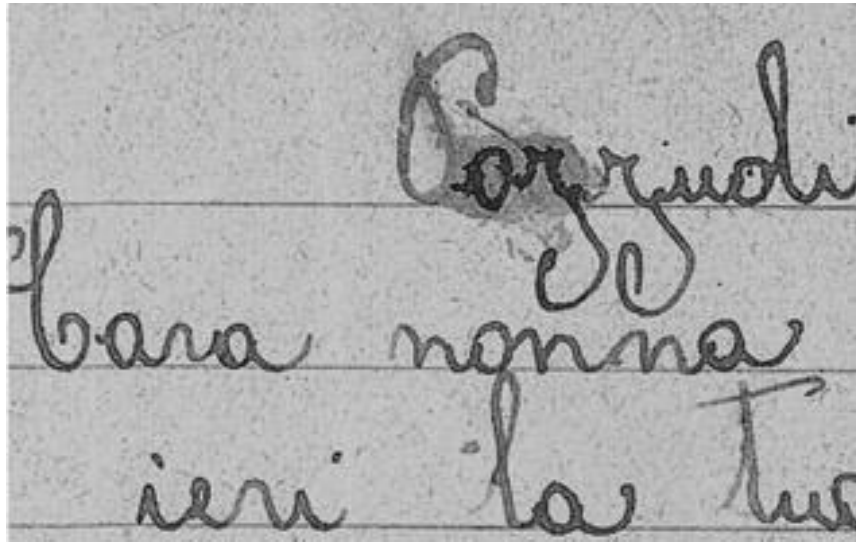 Pozzuoli
Cara nonna
ieri la tua